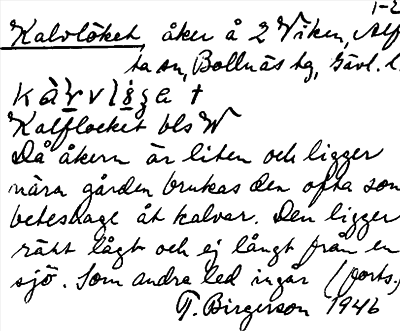 1-2
Kalvlöket, åker å 2 Viken, Alf
ta sn, Bollnäs tg, Gävl. l.
Kalflocket bls W
Då åkern är liten och ligger
nära gården brukas den ofta som
beteshage åt kalvar. Den ligger
rätt lågt och ej långt från en
sjö. Som andra led ingår (forts.)
T. Birgerson 1946